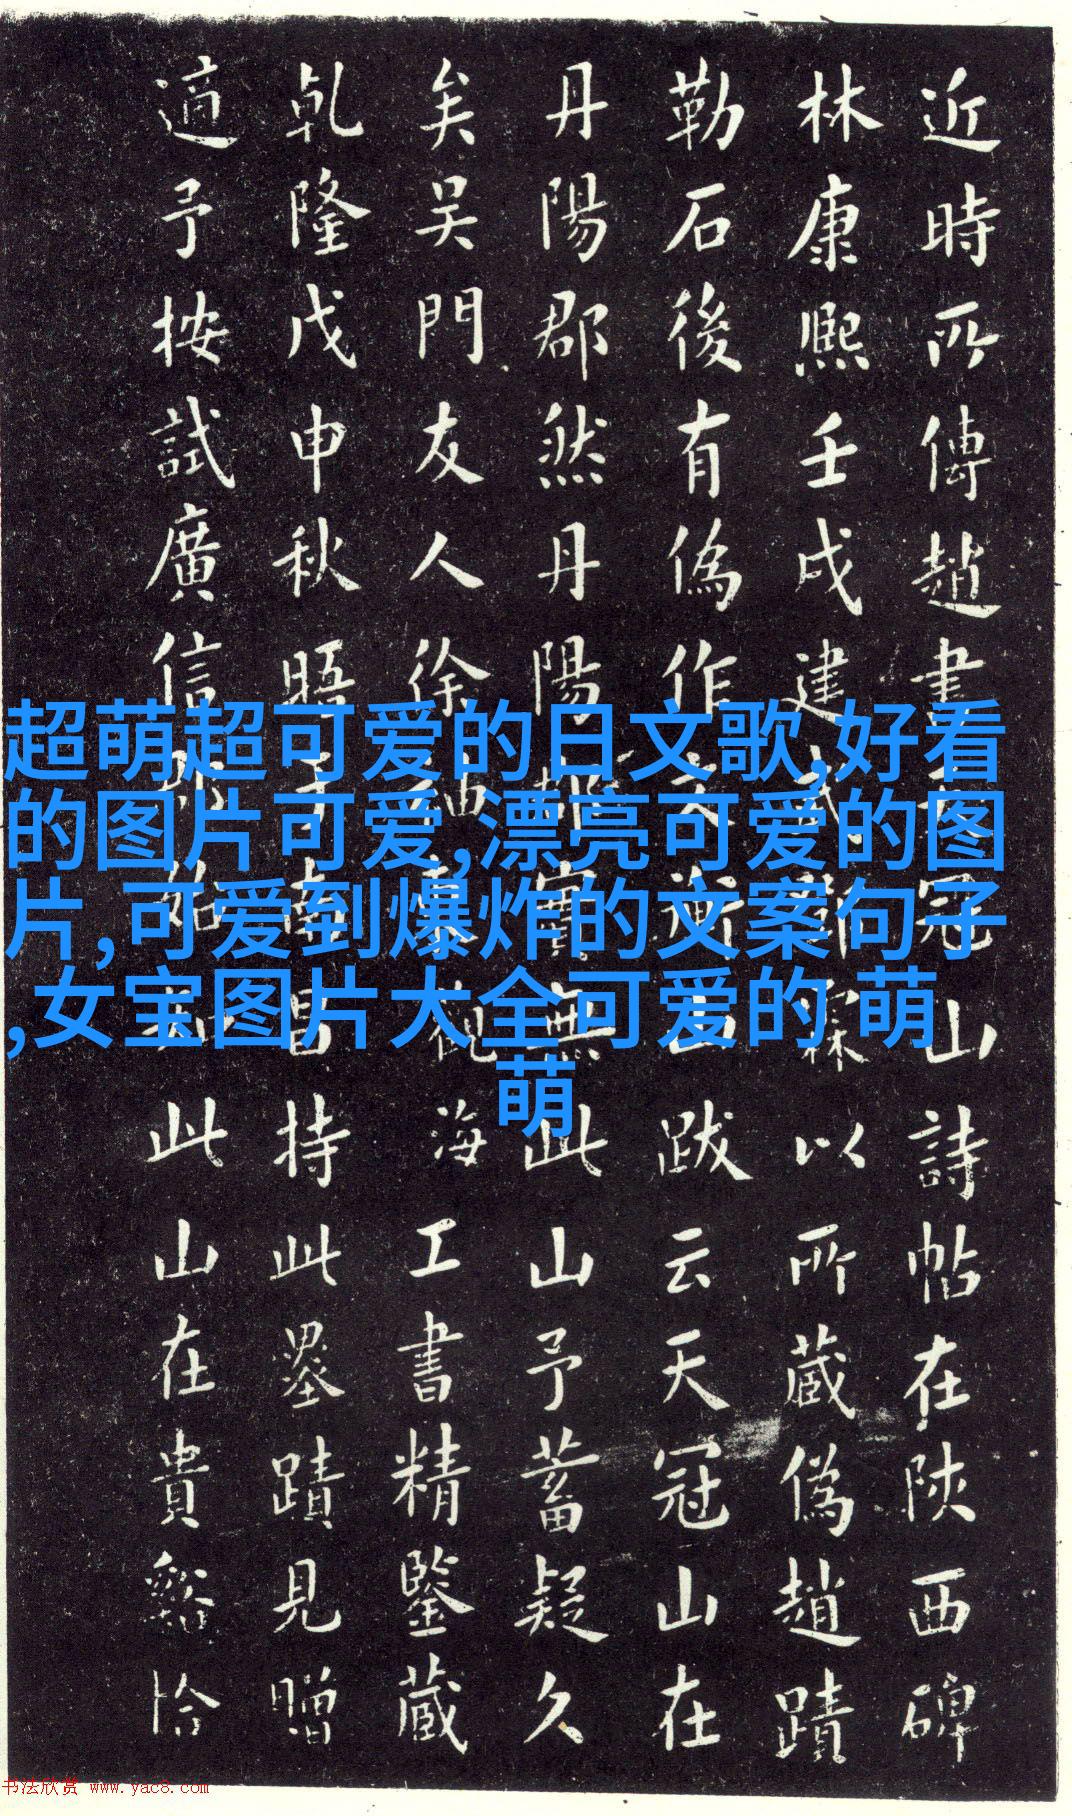 近時所傳趙書天冠山詩帖在陝西碑
林康熙壬戌建以所藏偽趙蹟
勒石後有偽作文衡山跋云天冠山在
丹陽郡然丹陽郡實無此山予蓄疑久
矣吴門友人徐海工書精鑒藏
乹隆戊申秋晤于南昌持此墨蹟見贈
適予按試廣信此山在貴谿恰
超萌超可爱的日文歌,好看
的图片可爱,漂亮可爱的图
片,可爱到爆炸的文案句子
,女宝图片大全可爱的 萌
萌
书法欣赏 www.yac8.com